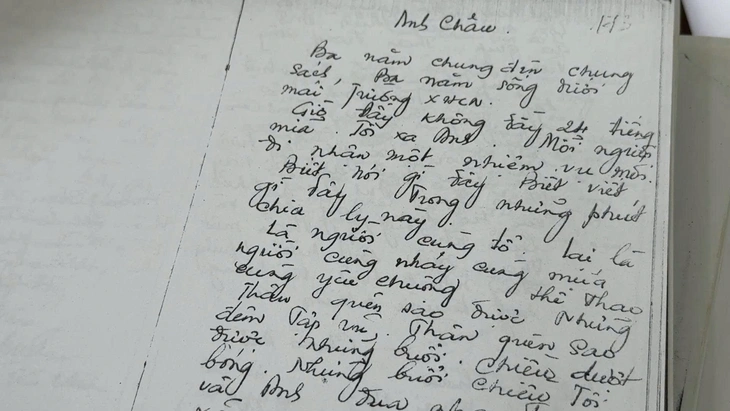 Anh Châu.
143
Ba năm chung đèn chung
sách, Ba năm sống dưới
mái Trường xưa.
Giờ đây không đầy 24 tiếng
nữa. Tôi xa Anh. Mỗi người
đi nhận một nhiệm vụ mới.
Biết nói gì đây Biết viết
gì đây. Trong những phút
chia ly này.
Là người cùng tổ, lại là
người cùng nhảy cùng múa
cùng yêu chuộng thể thao
Thân quên sao được Những
đêm Tập múa. Thân quên sao
được những buổi chiều dượt
bóng. Những buổi chiều Tôi
và Anh đua